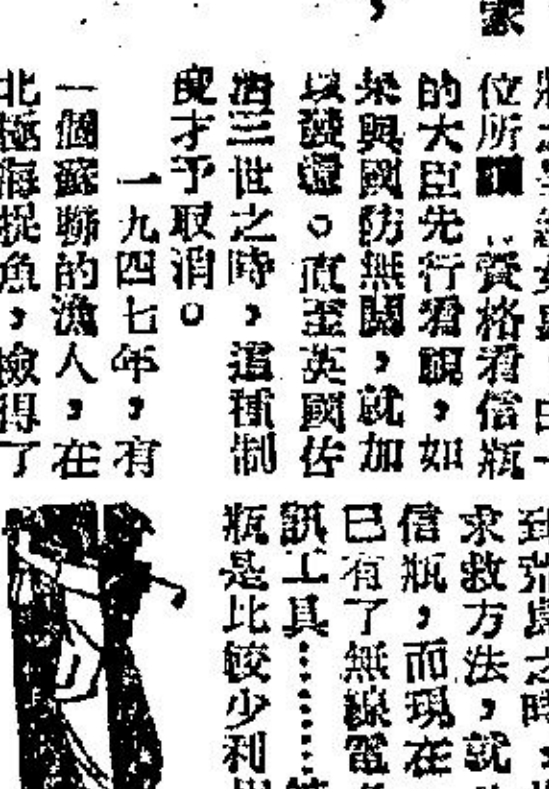 家
位所謂‥資格看信瓶
的大臣先行看覩，如
果與國防無關，就加
以發還。直至英國佐
治三世之時，這種制
度才予取消。
一九四七年，有
一個蘇聯的漁人，在
北極海捉魚，檢得了
到荒島之時，
求救方法，就
信瓶，而現在
已有了無線電
訊工具………
瓶是比較少利用